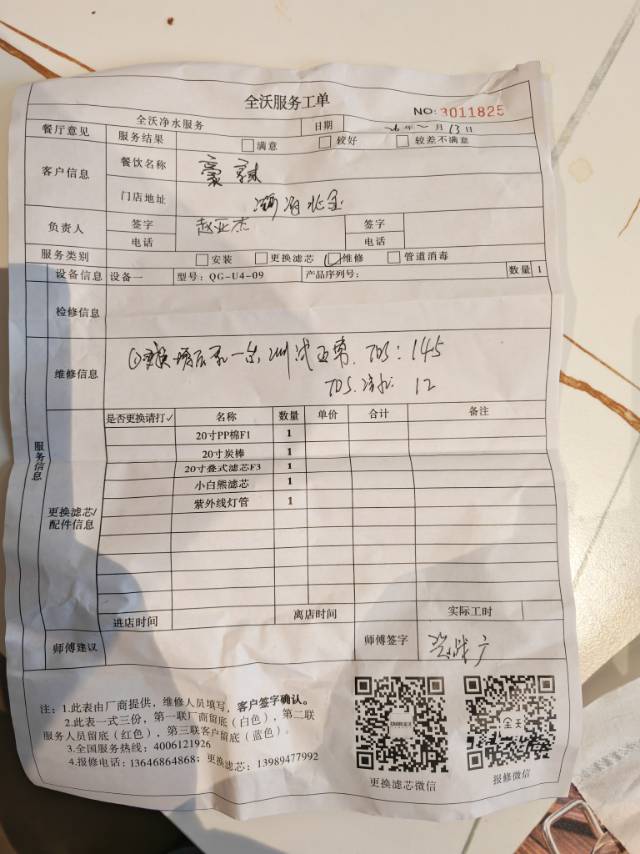 全沃服务工单
NO:3011825
全沃净水服务 日期 年 月 13日
餐厅意见 服务结果 满意 较好 较差不满意
客户信息 餐饮名称
门店地址
负责人 签字 赵亚杰 签字
电话 电话
服务类别 安装 更换滤芯 维修 管道消毒
设备信息 设备一 型号: QG-U4-09 产品序列号: 数量 1
检修信息
维修信息 ①更换增压泵一台 测试正常. TDS: 145
TDS. 12
服务信息
更换滤芯/配件信息
是否更换请打✓ 名称 数量 单价 合计 备注
20寸PP棉F1 1
20寸炭棒 1
20寸叠式滤芯F3 1
小白熊滤芯 1
紫外线灯管 1
进店时间 离店时间 实际工时
师傅建议 师傅签字
注: 1.此表由厂商提供, 维修人员填写, 客户签字确认。
2.此表一式三份, 第一联厂商留底(白色), 第二联
服务人员留底(红色), 第三联客户留底(蓝色)。
3.全国服务热线: 4006121926
4.报修电话: 13646864868; 更换滤芯: 13989477992
更换滤芯微信
全沃
报修微信